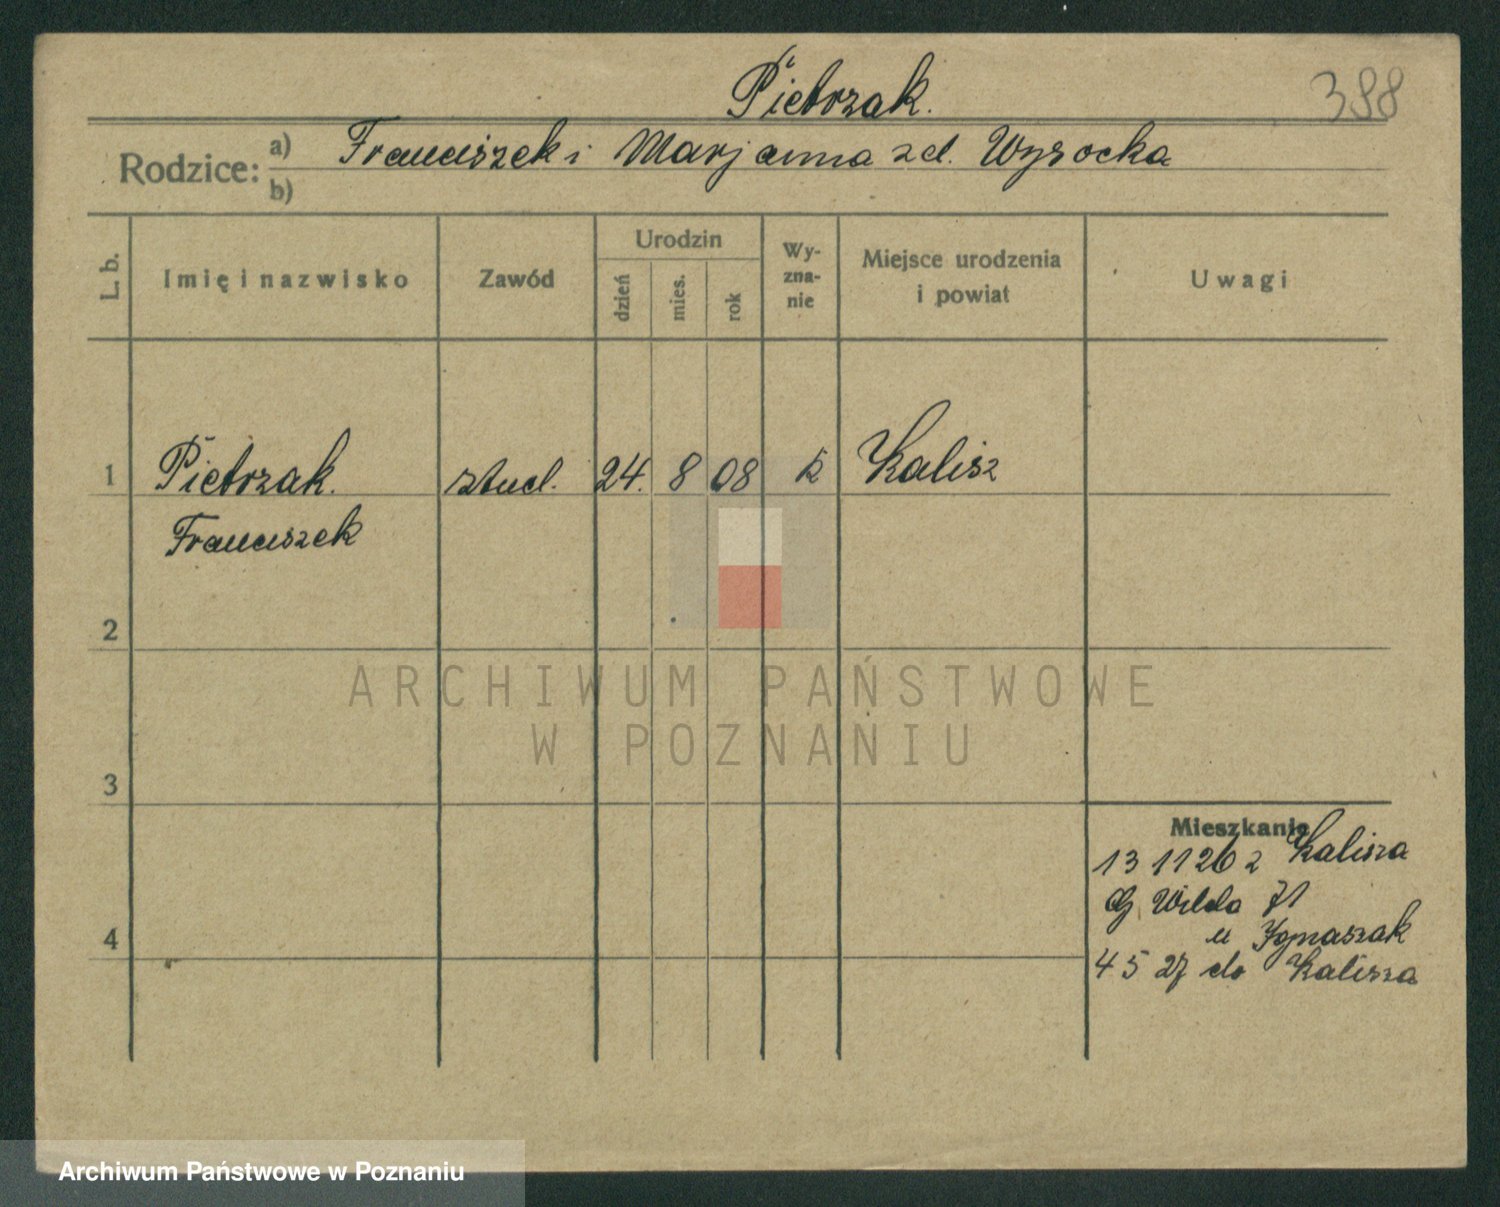 Pietrzak.
388
Rodzice: a) Franciszek i Marjanna z d. Wysocka
b)
L. b. Imię i nazwisko Zawód Urodzin dzień mies. rok Wy-zna-nie Miejsce urodzenia i powiat Uwagi
1 Pietrzak. stud. 24. 8 08 k Kalisz
Franciszek
2
3
4
Mieszkanie
13 11 26 z Kalisza
G Wilda 71
u Ignaszak
4 5 27 do Kalisza
ARCHIWUM PAŃSTWOWE
W POZNANIU
Archiwum Państwowe w Poznaniu